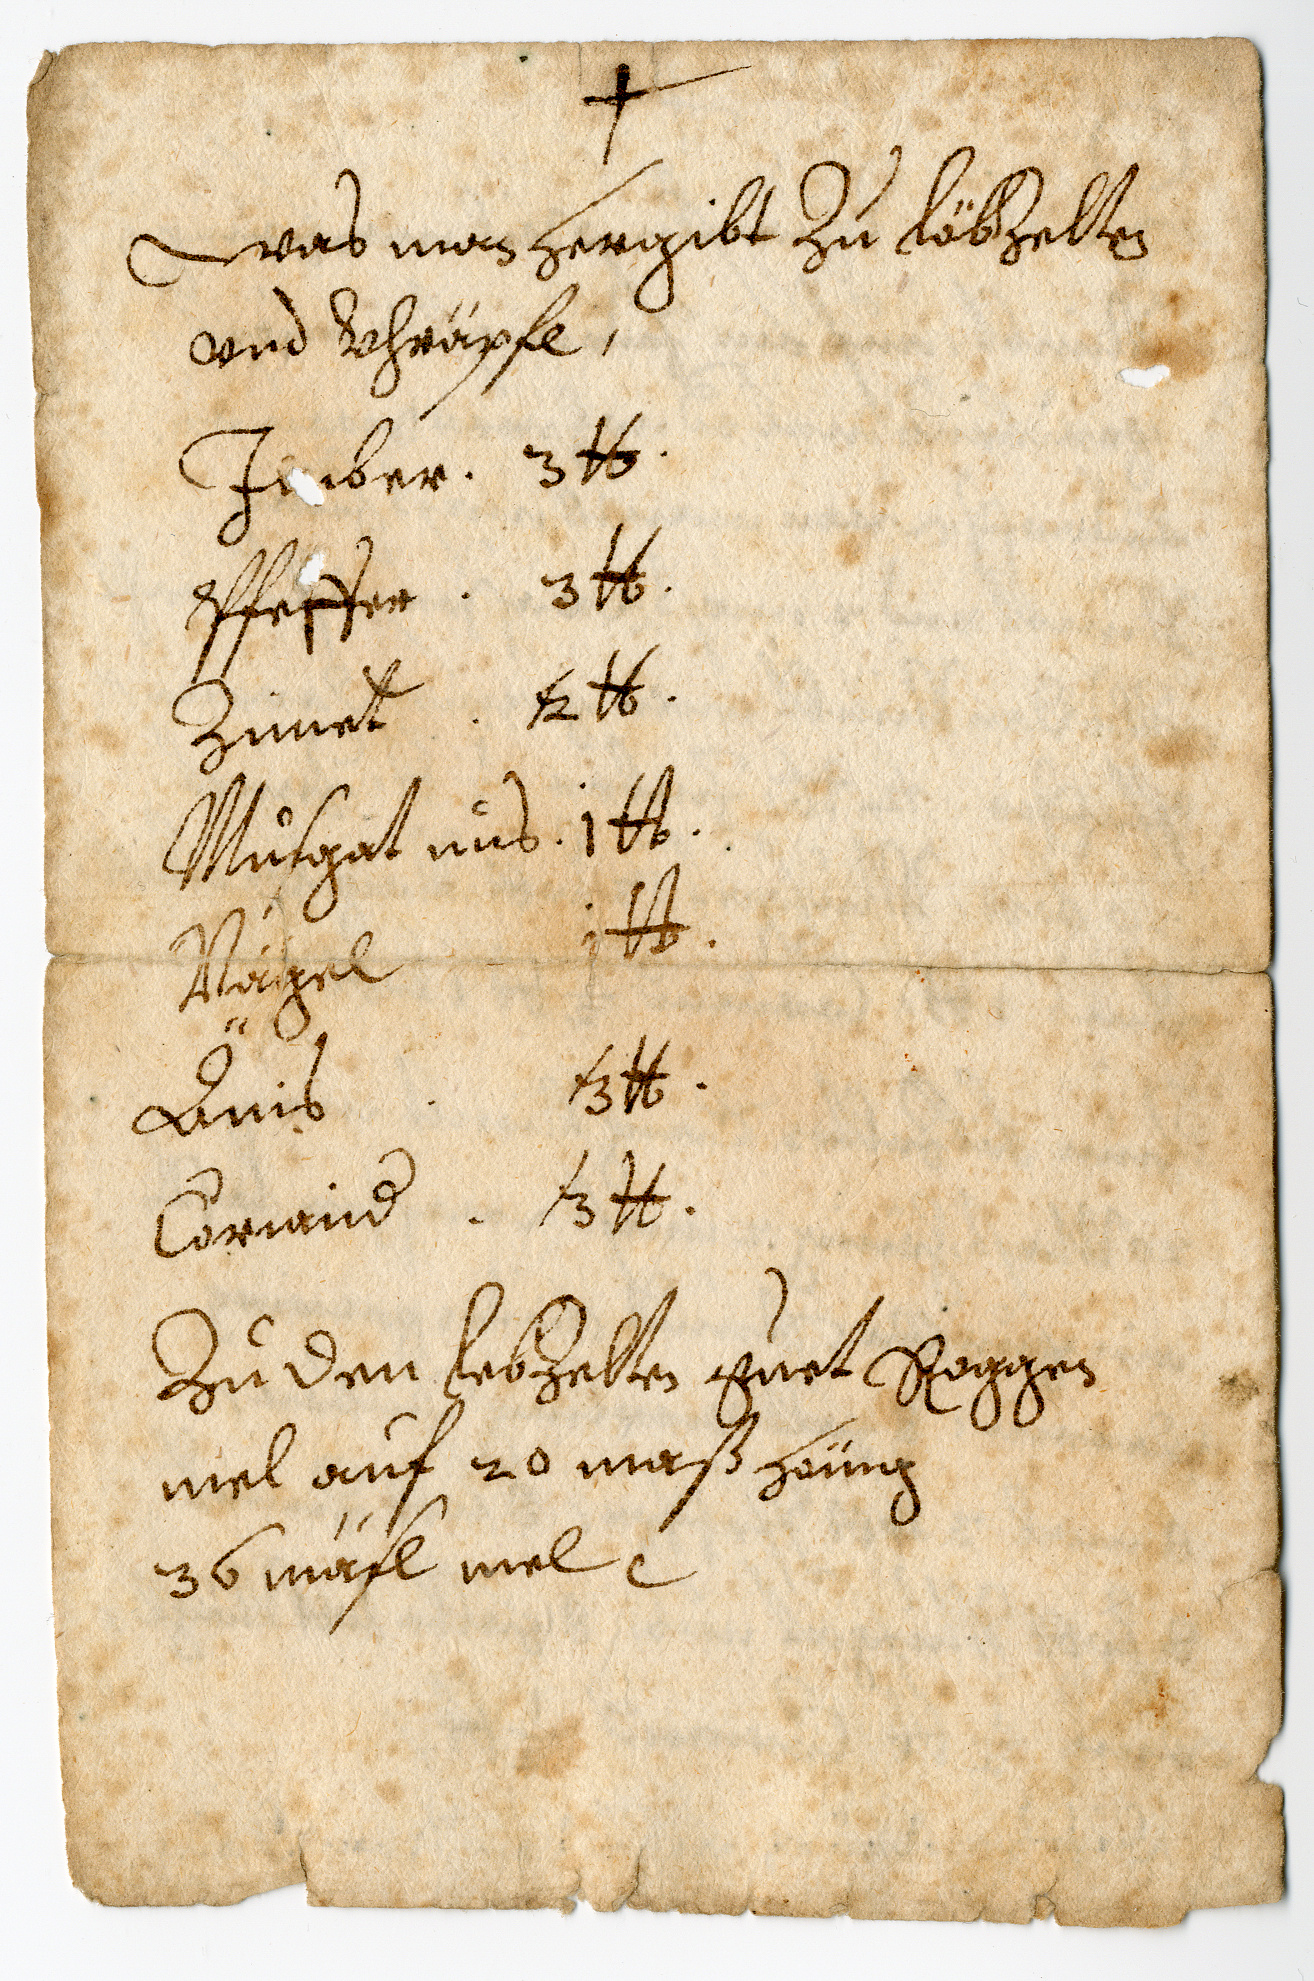 ✝
was man hergibt Zu löbZelten
vnd khräpfl,
Jmber. 3 ℔.
Pfeffer. 3 ℔.
Zimet. ½ ℔.
Musgat nus. j ℔.
Nägel j ℔.
Änis. ⅓ ℔.
Coriand. ⅓ ℔.
Zu den lebZelten guet Roggen
mel auf 20 maß höinig
36 mäsl mel